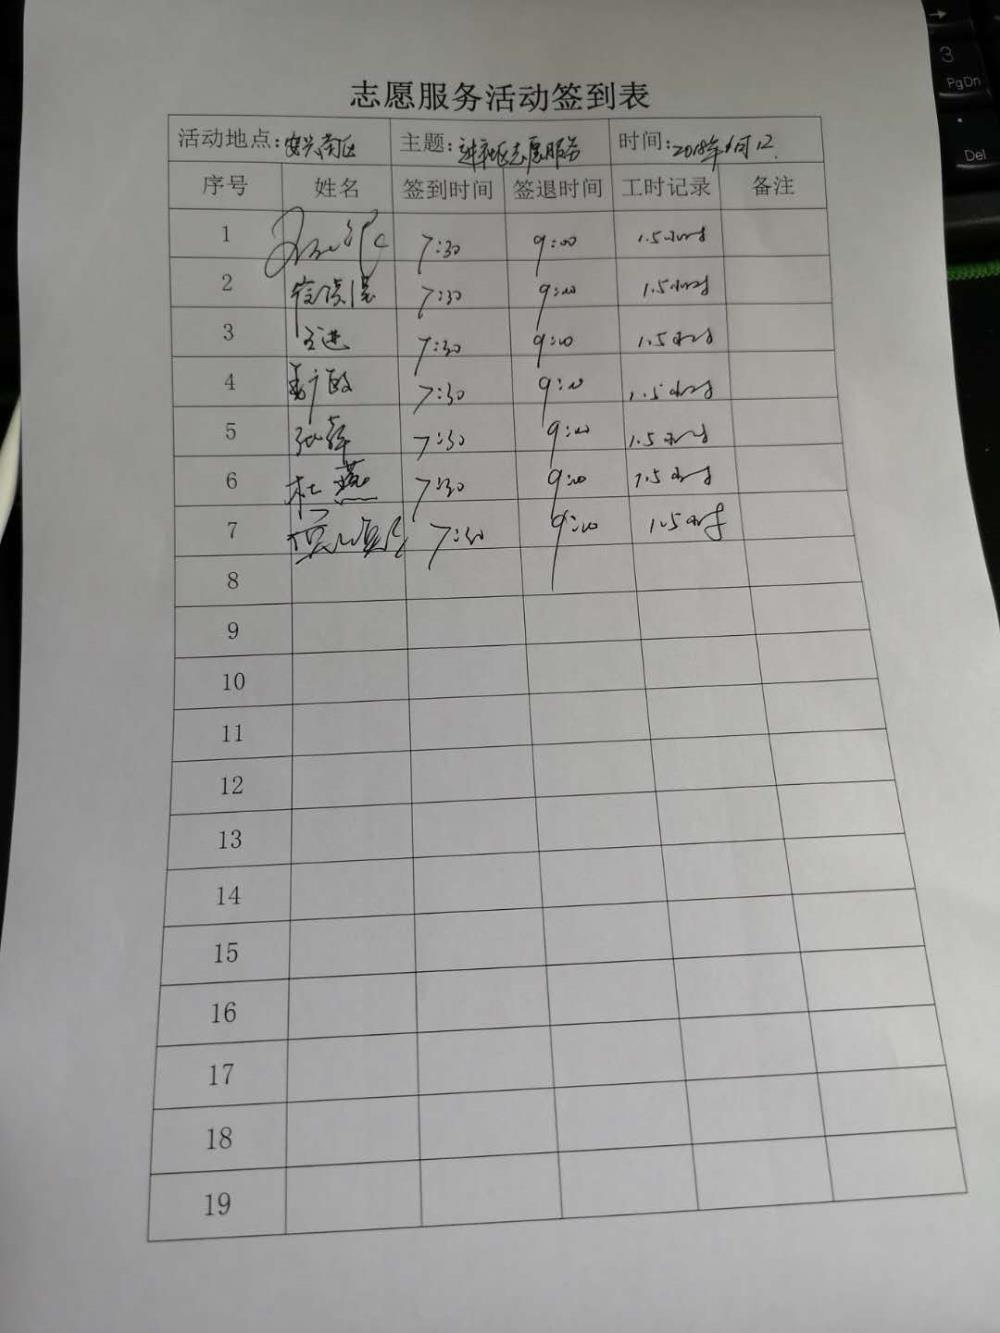 志愿服务活动签到表
活动地点:安兴南区 主题:进社区志愿服务 时间:2018年 月12
序号 姓名 签到时间 签退时间 工时记录 备注
1 7:30 9:00 1.5小时
2 7:30 9:00 1.5小时
3 王进 7:30 9:00 1.5小时
4 7:30 9:00 1.5小时
5 7:30 9:00 1.5小时
6 杜燕 7:30 9:00 1.5小时
7 7:30 9:00 1.5小时
8
9
10
11
12
13
14
15
16
17
18
19
3
PgDn
Del